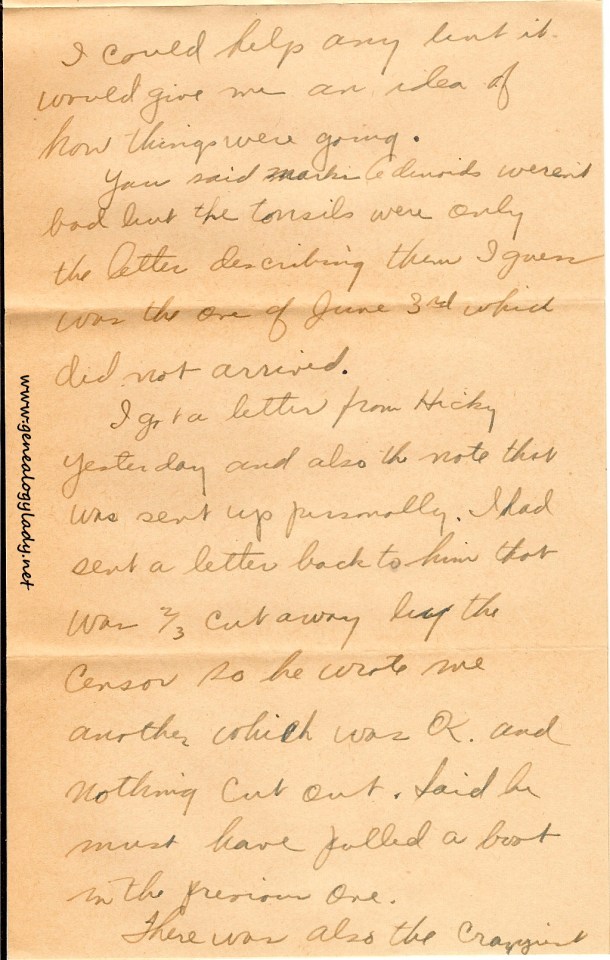 I could help any but it
would give me an idea of
how things were going.
You said marks adenoids weren't
bad but the tonsils were only
the letter describing them I guess
was the one of June 3rd which
did not arrived.
I got a letter from Hicky
yesterday and also the note that
was sent up personally. I had
sent a letter back to him that
was 2/3 cut away by the
Censor so he wrote me
another which was OK. and
nothing cut out. Said he
must have pulled a boot
in the previous one.
There was also the crappiest
www.genealogylady.net